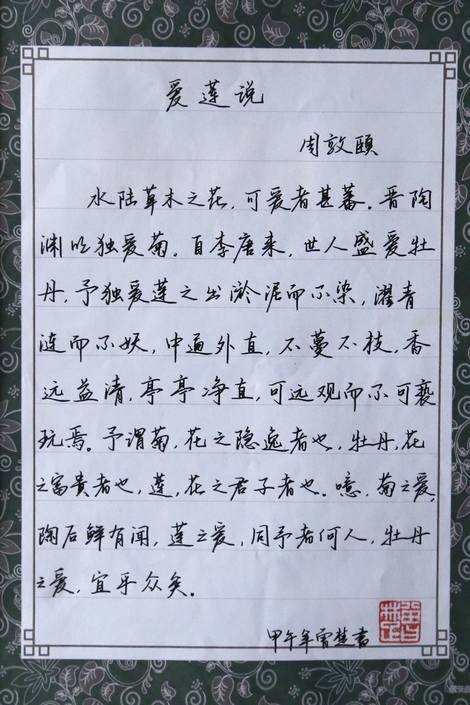 爱莲说
周敦颐
水陆草木之花，可爱者甚蕃。晋陶
渊明独爱菊。自李唐来，世人盛爱牡
丹，予独爱莲之出淤泥而不染，濯青
涟而不妖，中通外直，不蔓不枝，香
远益清，亭亭净直，可远观而不可亵
玩焉。予谓菊，花之隐逸者也，牡丹，花
之富贵者也，莲，花之君子者也。噫，菊之爱，
陶后鲜有闻，莲之爱，同予者何人，牡丹
之爱，宜乎众矣。
甲午年曾楚书